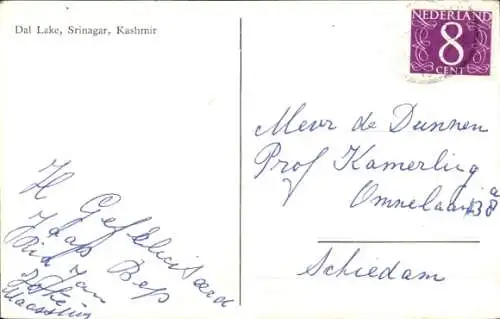 Dal Lake, Srinagar, Kashmir
NEDERLAND
8
CENT
Mevr de Dunnen
Prof Kamerling
Onneslaan 38
a
Schiedam
H Gefeliciteerd
Jaap Bep
Jan
Maassluis